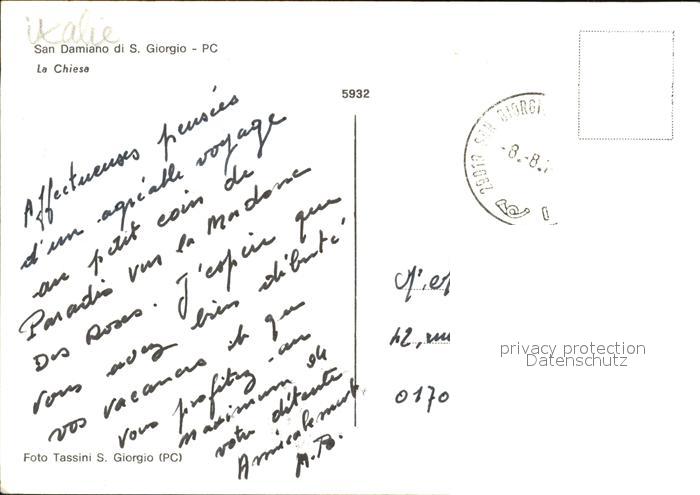 Italie
San Damiano di S. Giorgio - PC
La Chiesa
5932
Affectueuses pensées
d'un agréable voyage
au petit coin de
Paradis vers la Madone
Des Roses. J'espère que
vous avez bien débuté
vos vacances et que
vous profitez au
maximum de
votre détente
Amicalement
M.B.
29019 SAN GIORGI
-8.-8.
42, rue
0170
privacy protection
Datenschutz
Foto Tassini S. Giorgio (PC)